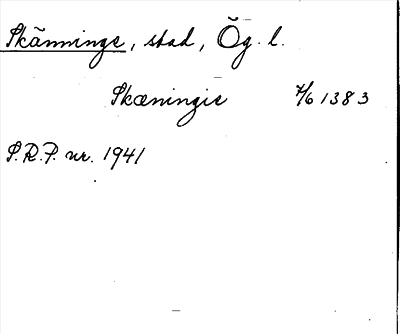 Skänninge, stad, Ög. l.
Skæningie 7/6 1383
S.R.P. nr. 1941